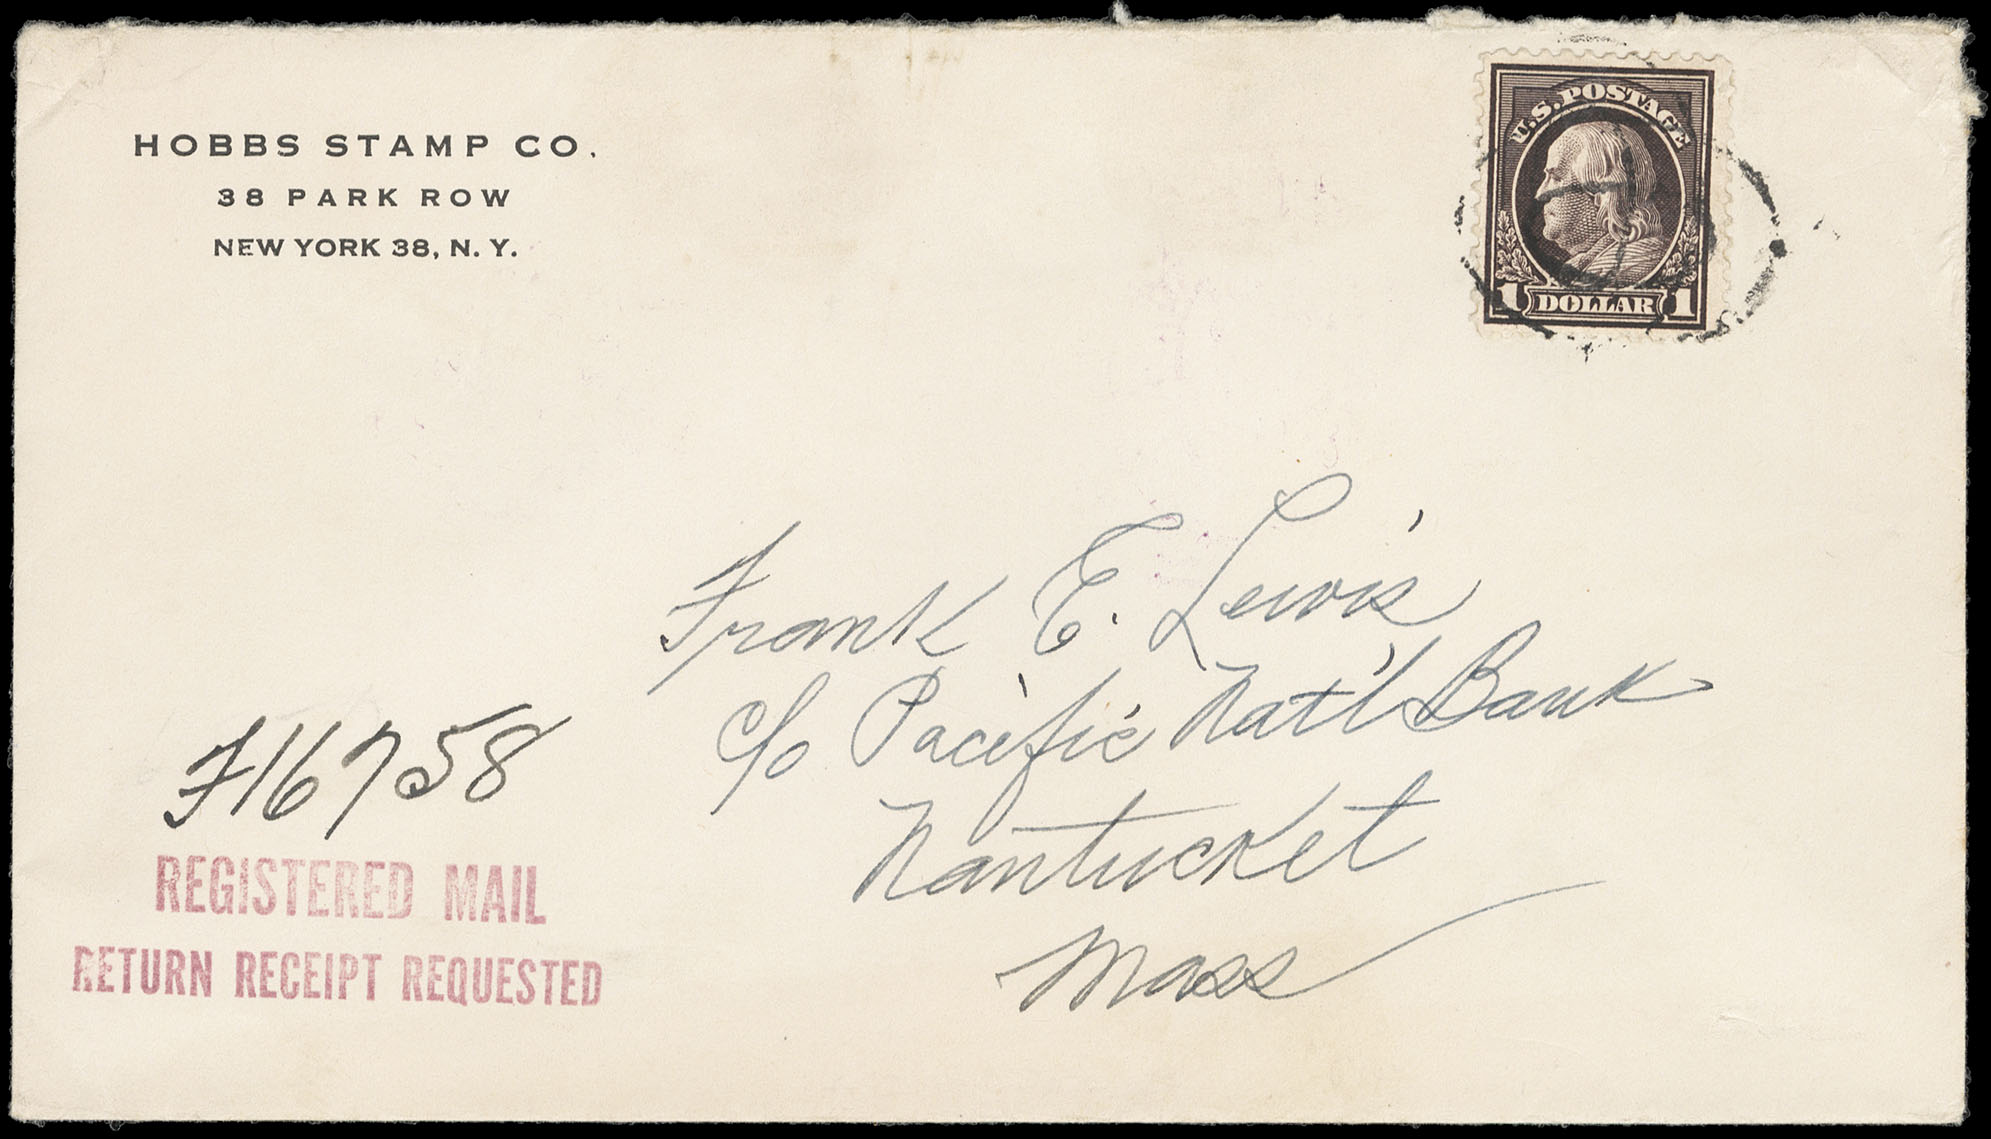 HOBBS STAMP CO.
38 PARK ROW
NEW YORK 38, N. Y.
U.S. POSTAGE
1 DOLLAR 1
Frank E. Lewis
c/o Pacific Nat'l Bank
Nantucket
Mass
716758
REGISTERED MAIL
RETURN RECEIPT REQUESTED